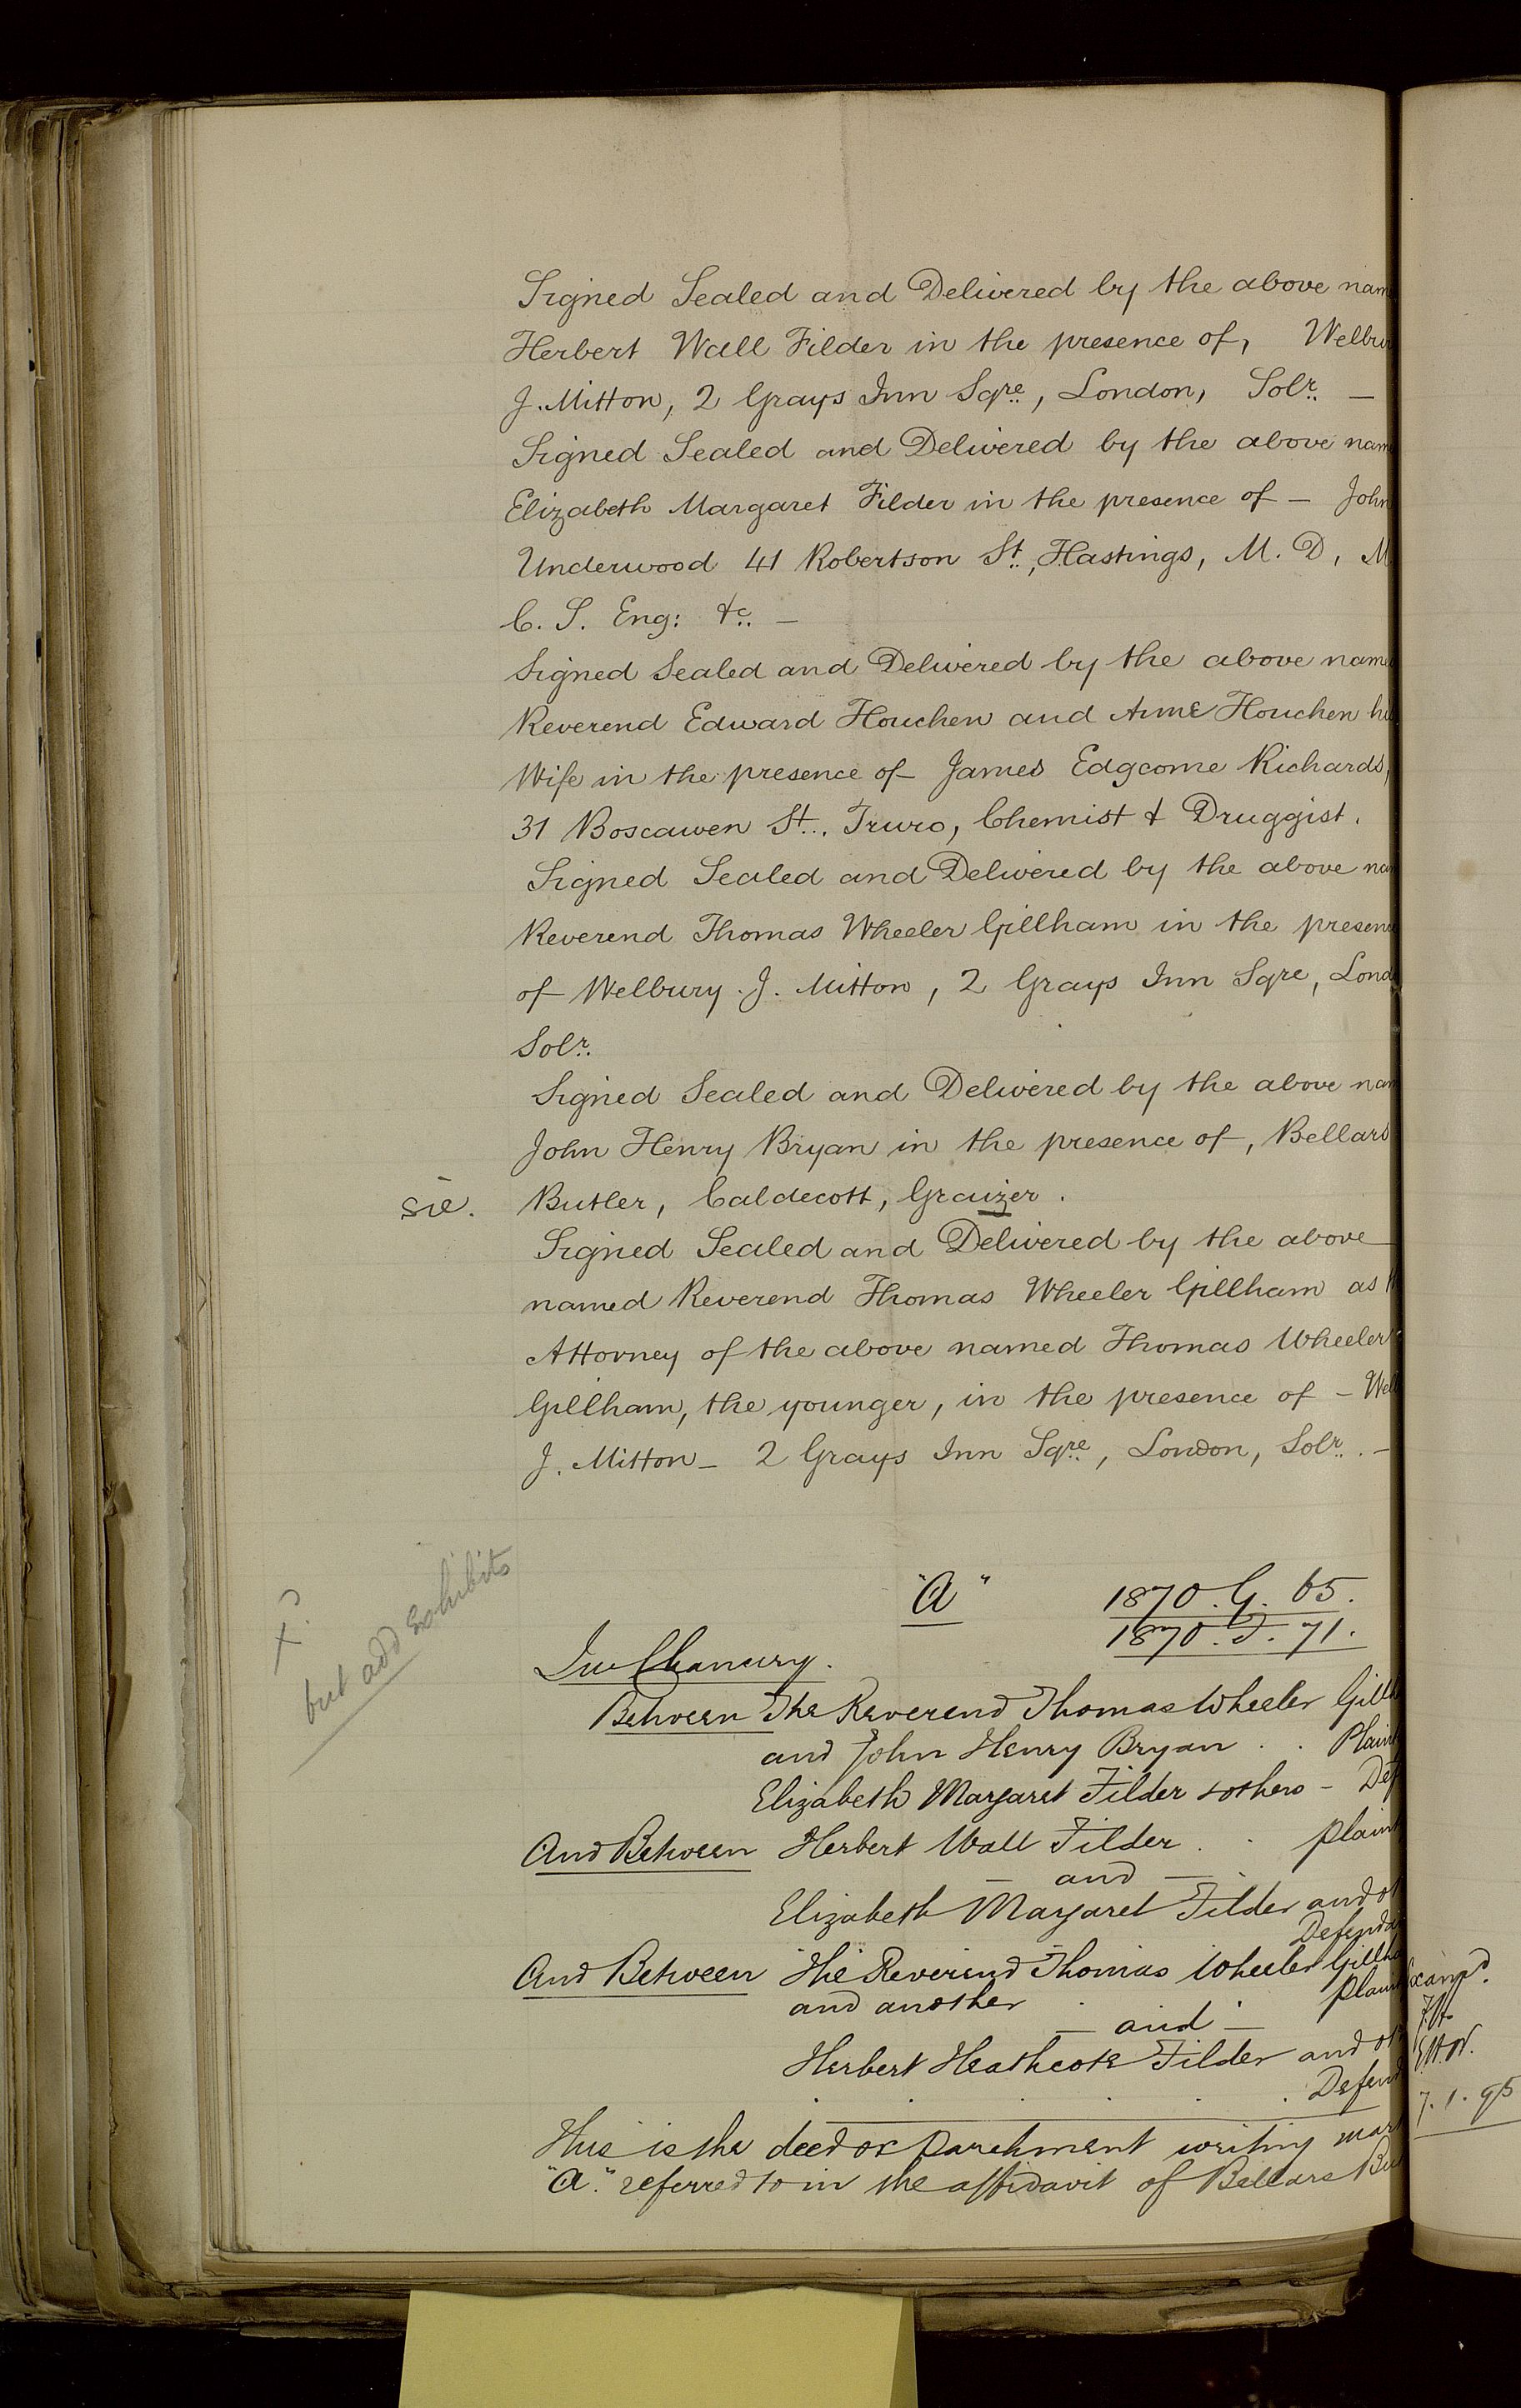 Signed Sealed and Delivered by the above name
Herbert Wall Filder in the presence of, Welbur
J. Mitton, 2 Grays Inn Sqre, London, Solr. —
Signed Sealed and Delivered by the above name
Elizabeth Margaret Filder in the presence of — John
Underwood 41 Robertson St., Hastings, M. D, M
C. S. Eng: &c. —
Signed Sealed and Delivered by the above name
Reverend Edward Houchen and Anne Houchen his
Wife in the presence of — James Edgcome Richards,
31 Boscawen St.. Truro, Chemist & Druggist.
Signed Sealed and Delivered by the above nam
Reverend Thomas Wheeler Gillham in the presenc
of Welbury. J. Mitton, 2 Grays Inn Sqre, Lond
Solr.
Signed Sealed and Delivered by the above nam
John Henry Bryan in the presence of, Bellars
sic. Butler, Caldecott, Graizer.
Signed Sealed and Delivered by the above
named Reverend Thomas Wheeler Gillham as
Attorney of the above named Thomas Wheeler
Gillham, the younger, in the presence of — Wel
J. Mitton — 2 Grays Inn Sqre, London, Solr. —
"A" 1870. G. 65.
1870. F. 71.
X?
but add exhibits
In Chancery.
Between The Reverend Thomas Wheeler Gillh
and John Henry Bryan . . Plaint
Elizabeth Margaret Filder & others — Def
And Between Herbert Wall Filder . . Plaint
— and —
Elizabeth Margaret Filder and ot
Defenda
And Between The Reverend Thomas Wheeler Gillha
and another Plain
— and —
Herbert Heathcote Filder and ot
Defend
This is the deed or parchment writing mark
"A." referred to in the affidavit of Bellars But
Examd.
7. 1. 95